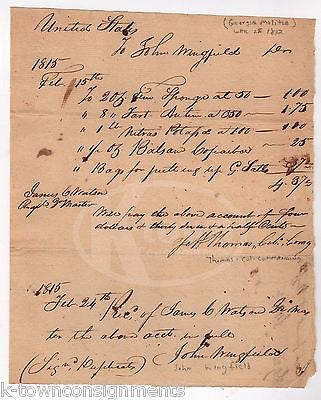 United States
(Georgia Militia)
War of 1812
To John Wingfield Dr
1815
Feb 15th
To 2 oz Fine Sponge at 50 1.00
" 8 oz Tart at 350 1.75
" 1 oz Nitras Potass a 100 1.00
" ½ oz Balsam Copaiba 25
" Bags for putting up G Salts 37½
4.37½
James C Watson
Regt Qr Master
pay the above account of four
dollars & thirty seven & a half Cents
Jett Thomas, Col. Comg
Thomas - col. commanding
1815
Feb 24th Recd of James C Watson Qr Mas
ter the above acct in full
(Signed Duplicate) John Wingfield
John Wingfield
k-townconsignments